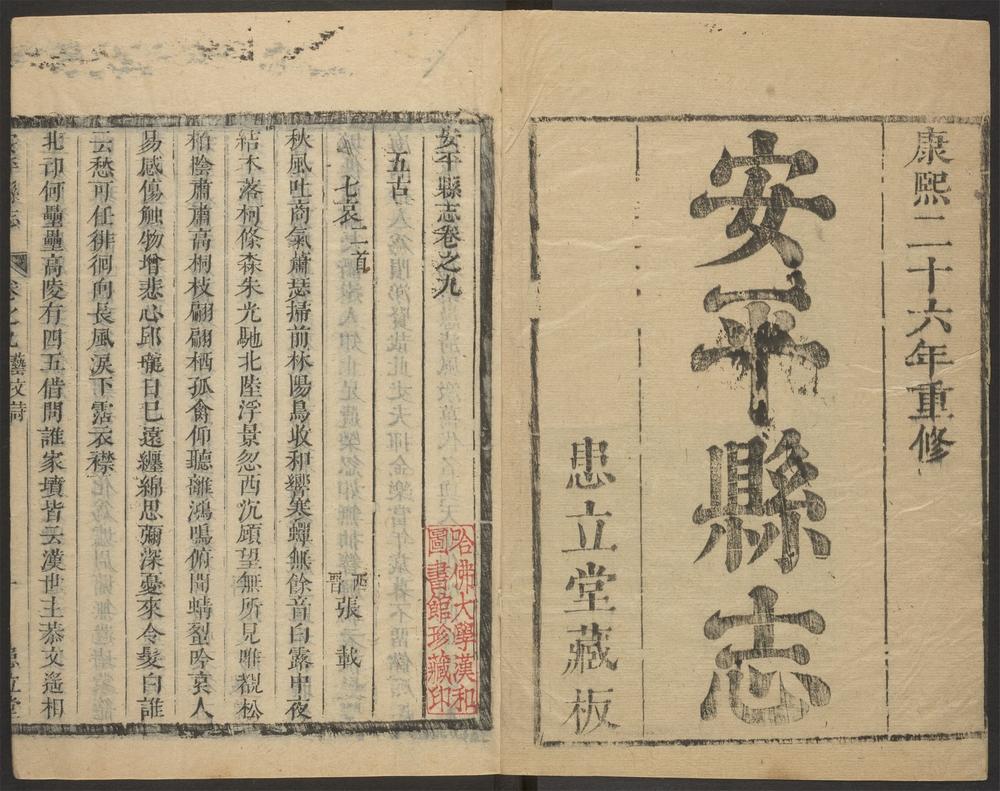 康熙二十六年重修
安平縣志
患立堂藏板
安平縣志卷之九
五古
七哀二首
西晉張載
秋風吐商氣蕭瑟掃前林陽鳥收和響寒蟬無餘音白露中夜
結木落柯條森朱光馳北陸浮景忽西沉顧望無所見唯覩松
柏陰肅肅高桐枝翩翩栖孤禽仰聽離鴻鳴俯聞蜻蛚吟哀人
易感傷触物增悲心邱壠日已遠纏綿思彌深憂來令髮白誰
云愁可任徘徊向長風淚下霑衣襟
北邙何壘壘高陵有四五借問誰家墳皆云漢世主恭文遙相
安平縣志
卷之九
藝文詩
一
患立堂
哈佛大學漢和
圖書館珍藏印